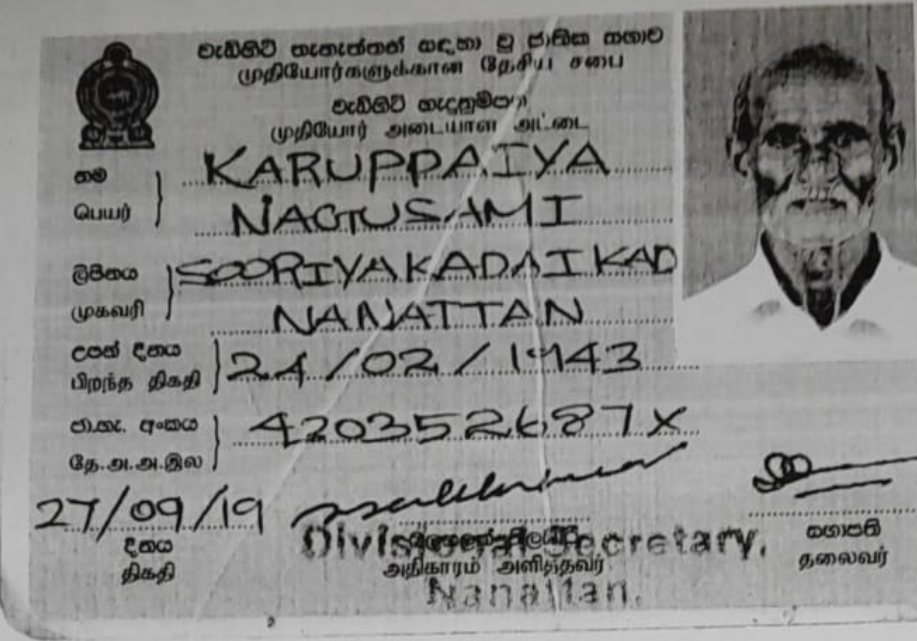 වැඩිහිටි තැනැත්තන් සඳහා වූ ජාතික සභාව
முதியோர்களுக்கான தேசிய சபை
වැඩිහිටි හැඳුනුම්පත
முதியோர் அடையாள அட்டை
නම
பெயர்
KARUPPAIYA
NAGTUSAMI
ලිපිනය
முகவரி
SOORIYAKADAIKAD
NANATTAN
උපන් දිනය
பிறந்த திகதி
24/02/1943
ජා.හැ. අංකය
தே.அ.அ.இல
420352687X
27/09/19
දිනය
திகதி
Divisional Secretary,
அதிகாரம் அளித்தவர்
Nanattan.
සභාපති
தலைவர்